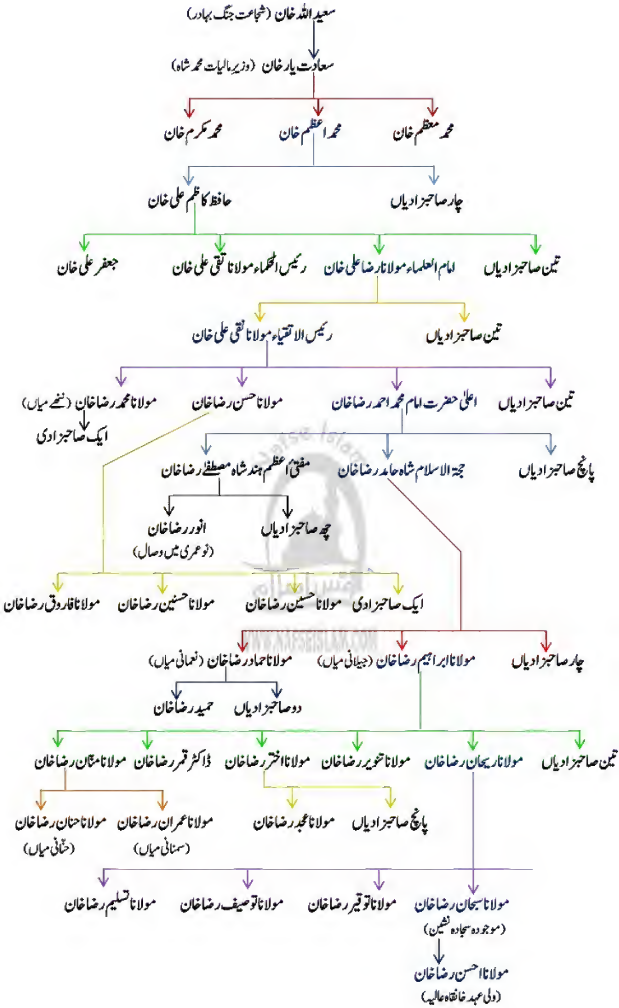 سعید اللہ خان (شجاعت جنگ بہادر)
سعادت یار خان (وزیر مالیات محمد شاہ)
محمد معظم خان محمد اعظم خان محمد مکرم خان
چار صاحبزادیاں حافظ کاظم علی خان
تین صاحبزادیاں امام العلماء مولانا رضا علی خان رئیس الحکماء مولانا تقی علی خان جعفر علی خان
تین صاحبزادیاں رئیس الاتقیاء مولانا نقی علی خان
تین صاحبزادیاں اعلیٰ حضرت امام محمد احمد رضا خان مولانا حسن رضا خان مولانا محمد رضا خان (ننھے میاں)
ایک صاحبزادی
پانچ صاحبزادیاں حجۃ الاسلام شاہ حامد رضا خان مفتیٔ اعظم ہند شاہ مصطفےٰ رضا خان
چھ صاحبزادیاں انور رضا خان
(نو عمری میں وصال)
ایک صاحبزادی مولانا حسین رضا خان مولانا حسنین رضا خان مولانا فاروق رضا خان
نفس اسلام
WWW.NAFSEISLAM.COM
چار صاحبزادیاں مولانا ابراہیم رضا خان (جیلانی میاں) مولانا حماد رضا خان (نعمانی میاں)
دو صاحبزادیاں حمید رضا خان
تین صاحبزادیاں مولانا ریحان رضا خان مولانا تنویر رضا خان مولانا اختر رضا خان ڈاکٹر قمر رضا خان مولانا منّان رضا خان
پانچ صاحبزادیاں مولانا عسجد رضا خان مولانا عمران رضا خان مولانا حنان رضا خان
(سمنانی میاں) (حنّانی میاں)
مولانا سبحان رضا خان مولانا توقیر رضا خان مولانا توصیف رضا خان مولانا تسلیم رضا خان
(موجودہ سجادہ نشین)
مولانا احسن رضا خان
(ولی عہد خانقاہ عالیہ)